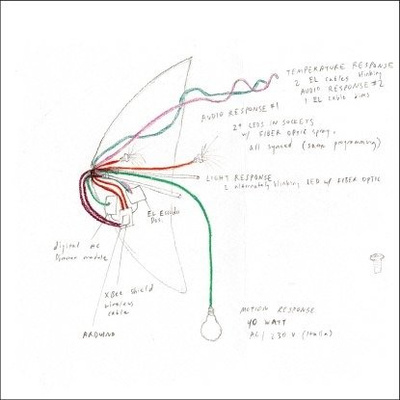 TEMPERATURE RESPONSE
2 EL cables blinking
AUDIO RESPONSE #2
1 EL cable dims
AUDIO RESPONSE #1
2+ LEDS IN SOCKETS
w/ FIBER OPTIC spray,
all synced (same programming)
LIGHT RESPONSE
2 alternately blinking LED w/ FIBER OPTIC
EL Escudo
Dos.
digital AC
Dimmer module
XBee shield
wireless
cable
ARDUINO
MOTION RESPONSE
40 WATT
AC / 230 V